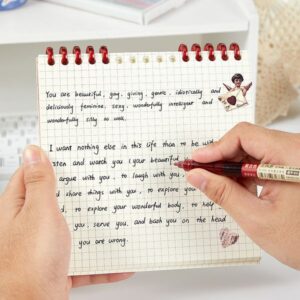 You are beautiful, gay, giving, gentle, idiotically and
deliciously feminine, sexy, wonderfully intelligent and
wonderfully silly as well.
I want nothing else in this life than to be with
listen and watch you (your beautiful
argue with you, to laugh with you,
share things with you, to explore your
to explore your wonderful body, to help
you, serve you, and bash you on the head
you are wrong.